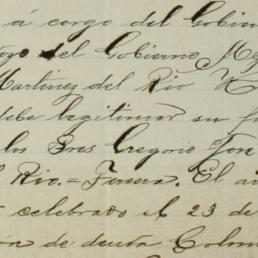 á cargo del Gobier
del Gobierno Me
Martinez del Rio H
debe legitimar su f
los Sres Gregorio Jose
Rio.= Tercera. El a
celebrado el 23 de
ón de deuta Colon